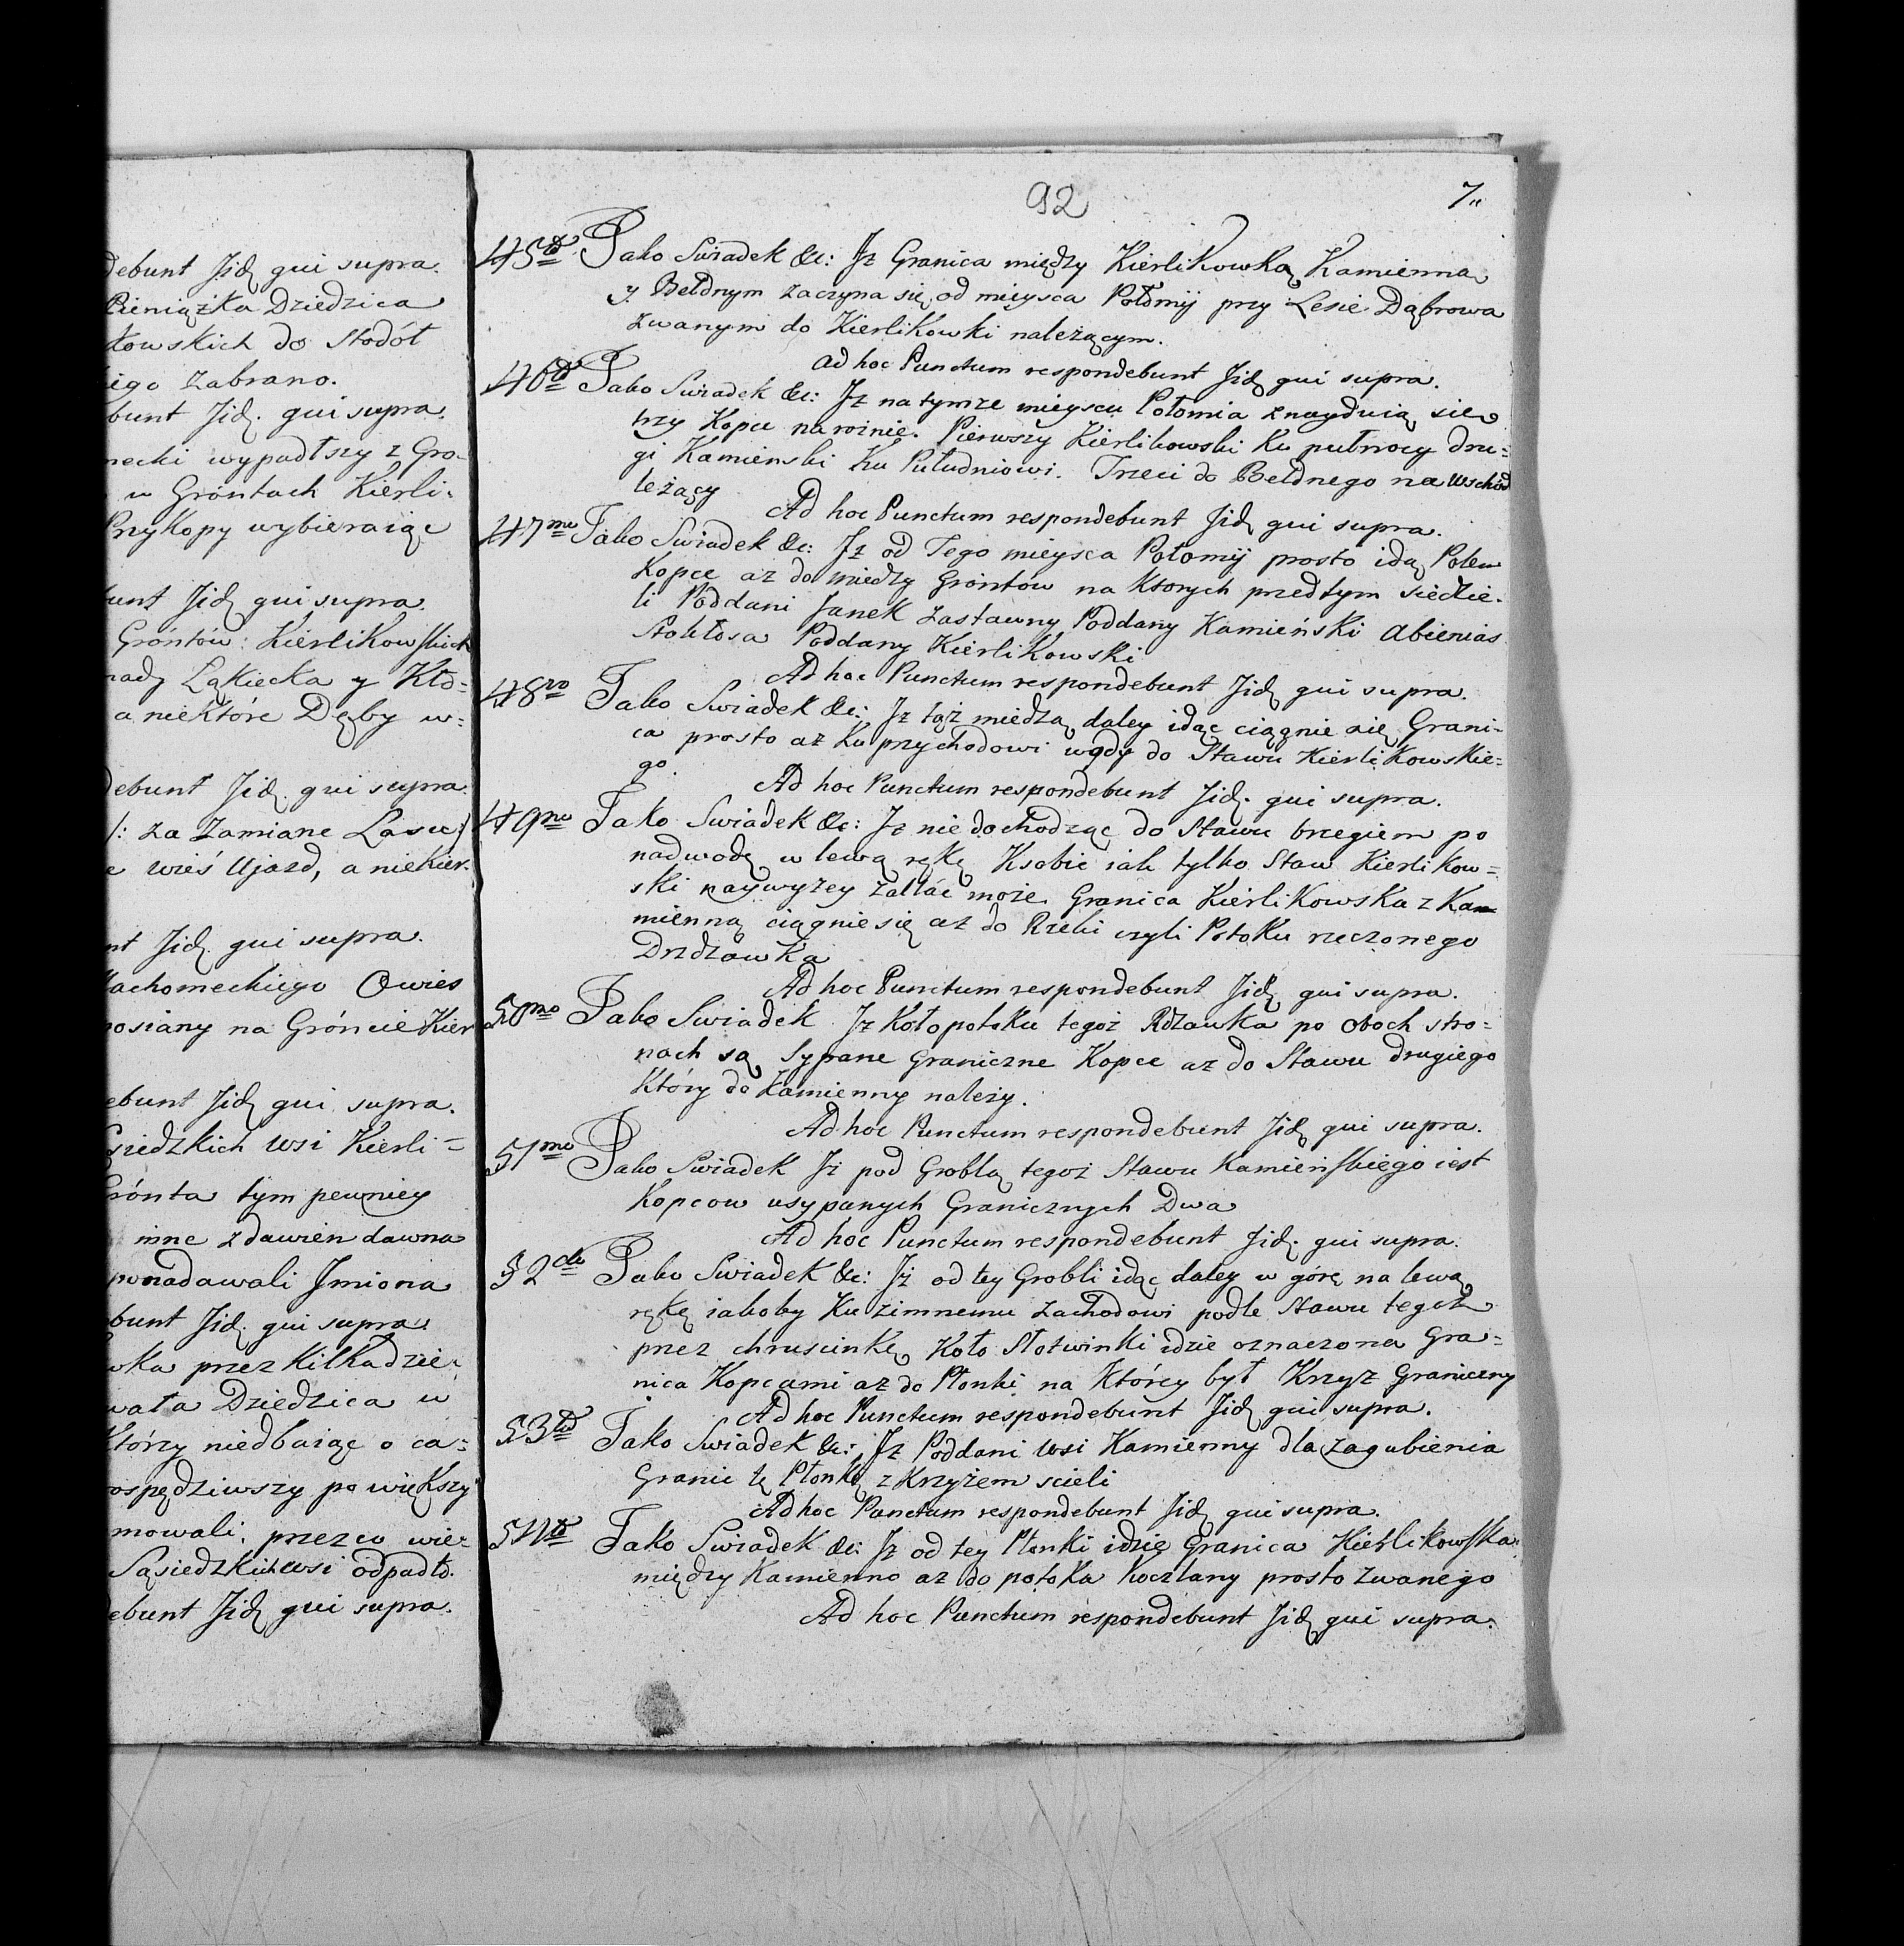 debunt Jid. qui supra.
Pieniążka Dziedzica
kowskich do Stodół
iego zabrano.
bunt Jid. qui supra.
necki wypadłszy z Gro-
w Gróntach Kierli-
Przykopy wybieraiąc
bunt Jid. qui supra.
Gróntów: Kierlikowskich
nadz Ląkiecka y Kło=
a niektóre Dęby w=
debunt Jid. qui supra.
/: za Zamiane Lasu:/
e wieś Ujazd, a niekier-
nt Jid. qui supra.
Machomeckiego Owies
posiany na Gróncie Kier
debunt Jid. qui supra.
Sąsiedzkich wsi Kierli=
Grónta tym pewniey
inne zdawien dawna
ponadawali Jmiona
bunt Jid. qui supra.
wka przez kilkadzie-
wała Dziedzica w
którzy niedbaiąc o ca=
rospędziwszy po większy
mowali, przez co wie=
Sąsiedzkich wsi odpadło.
debunt Jid. qui supra.
92
7.
45to Jako Swiadek &c: Jż Granica między Kierlikowką Kamienną
y Bełdnym zaczyna się od mieysca Połomij przy Lesie Dąbrowa
zwanym do Kierlikowki należącym.
ad hoc Punctum respondebunt Jid. qui supra.
46to Jako Swiadek &c: Jż na tymże mieyscu Połomia znayduią się
trzy Kopce narożnie. Pierwszy Kierlikowski ku pułnocy dru=
gi Kamienski ku Południowi. Trzeci do Bełdnego na wschód
leżący
Ad hoc Punctum respondebunt Jid. qui supra.
47mo Jako Swiadek &c: Jż od Tego mieysca Połomij prosto idą Polem
Kopce aż do miedzy Gróntów na ktorych przedtym siedzie-
li Poddani Janek Zastawny Poddany Kamieński a bienias
Stokłosa Poddany Kierlikowski
Ad hoc Punctum respondebunt Jid. qui supra.
48vo Jako Swiadek &c: Jż tąż miedzą daley idąc ciągnie się Grani-
ca prosto aż ku przychodowi wody do Stawu Kierlikowskie=
go.
Ad hoc Punctum respondebunt Jid. qui supra.
49no Jako Swiadek &c: Jż nie dochodząc do Stawu brzegiem po
nadwodę w lewą rękę Ksobie iak tylko Staw Kierlikow=
ski naywyżey zallać może Granica Kierlikowska z Ka
mienną ciągnie się aż do Rzeki czyli Potoku rzeczonego
Drdzawka
Ad hoc Punctum respondebunt Jid. qui supra.
50mo Jako Swiadek Jż koło potoku tegoż Rdzawka po oboch stro=
nach są Sypane Graniczne Kopce aż do Stawu drugiego
który do Kamienny należy.
Ad hoc Punctum respondebunt Jid. qui supra.
51mo Jako Swiadek Jż pod Groblą tegoż Stawu Kamieńskiego iest
Kopcow usypanych Granicznych Dwa
Ad hoc Punctum respondebunt Jid. qui supra.
52do Jako Swiadek &c: Jż od tey Grobli idąc daley w górę na lewą
rękę iakoby ku zimnemu zachodowi podle Stawu tegoż
przez chruscinkę koło Słotwinki idzie oznaczona Gra=
nica Kopcami aż do Płonki na Którey był Krzyż Graniczny
Ad hoc Punctum respondebunt Jid. qui supra.
53tio Jako Swiadek &c: Jż Poddani wsi Kamienny dla zagubienia
Granic tę Płonkę z Krzyżem scieli
Ad hoc Punctum respondebunt Jid. qui supra.
54to Jako Swiadek &c: Jż od tey Płonki idzie Granica Kierlikowska
między Kamienno aż do potoka Koczlany prosto zwanego
Ad hoc Punctum respondebunt Jid. qui supra.